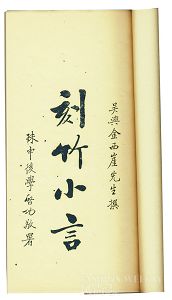 吳興金西厓先生撰
刻竹小言
珠申後學啓功敬署